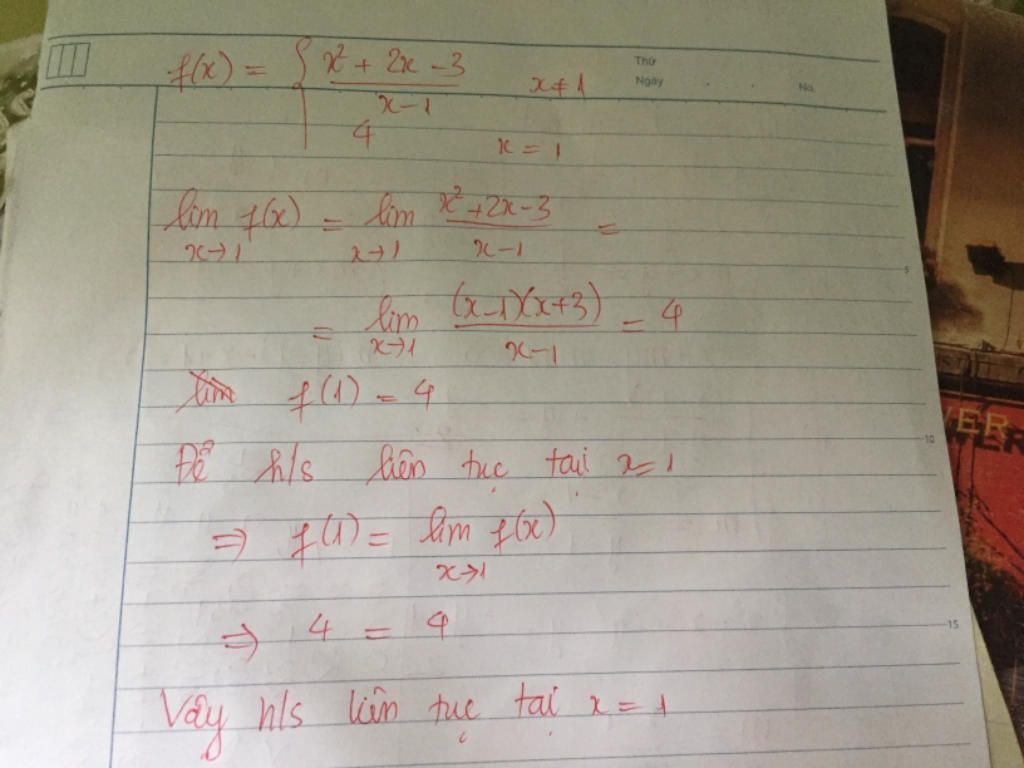 Thứ
Ngày No.
f(x) = { x² + 2x - 3 / x - 1 x ≠ 1
4 x = 1
lim x→1 f(x) = lim x→1 x² + 2x - 3 / x - 1 =
= lim x→1 (x-1)(x+3) / x-1 = 4
f(1) = 4
Để h/s liên tục tại x = 1
⇒ f(1) = lim x→1 f(x)
⇒ 4 = 4
Vậy h/s liên tục tại x = 1
5
10
15